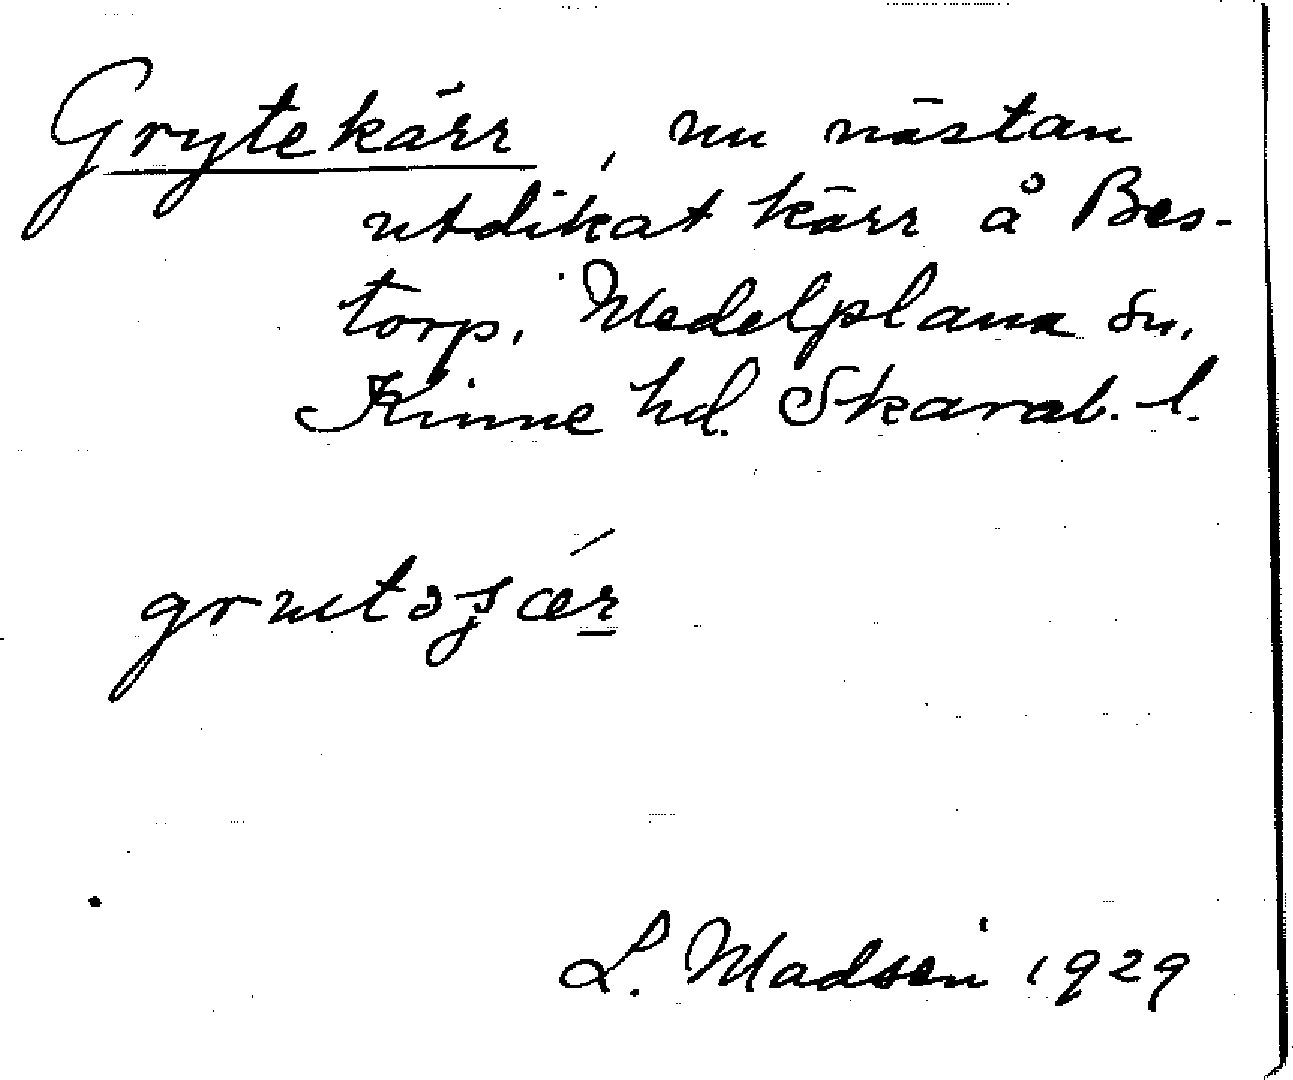 Grytekärr, nu nästan
utdikat kärr å Bes-
torp, Medelplana sn,
Kinne hd. Skarab. l.
L. Madsen 1929